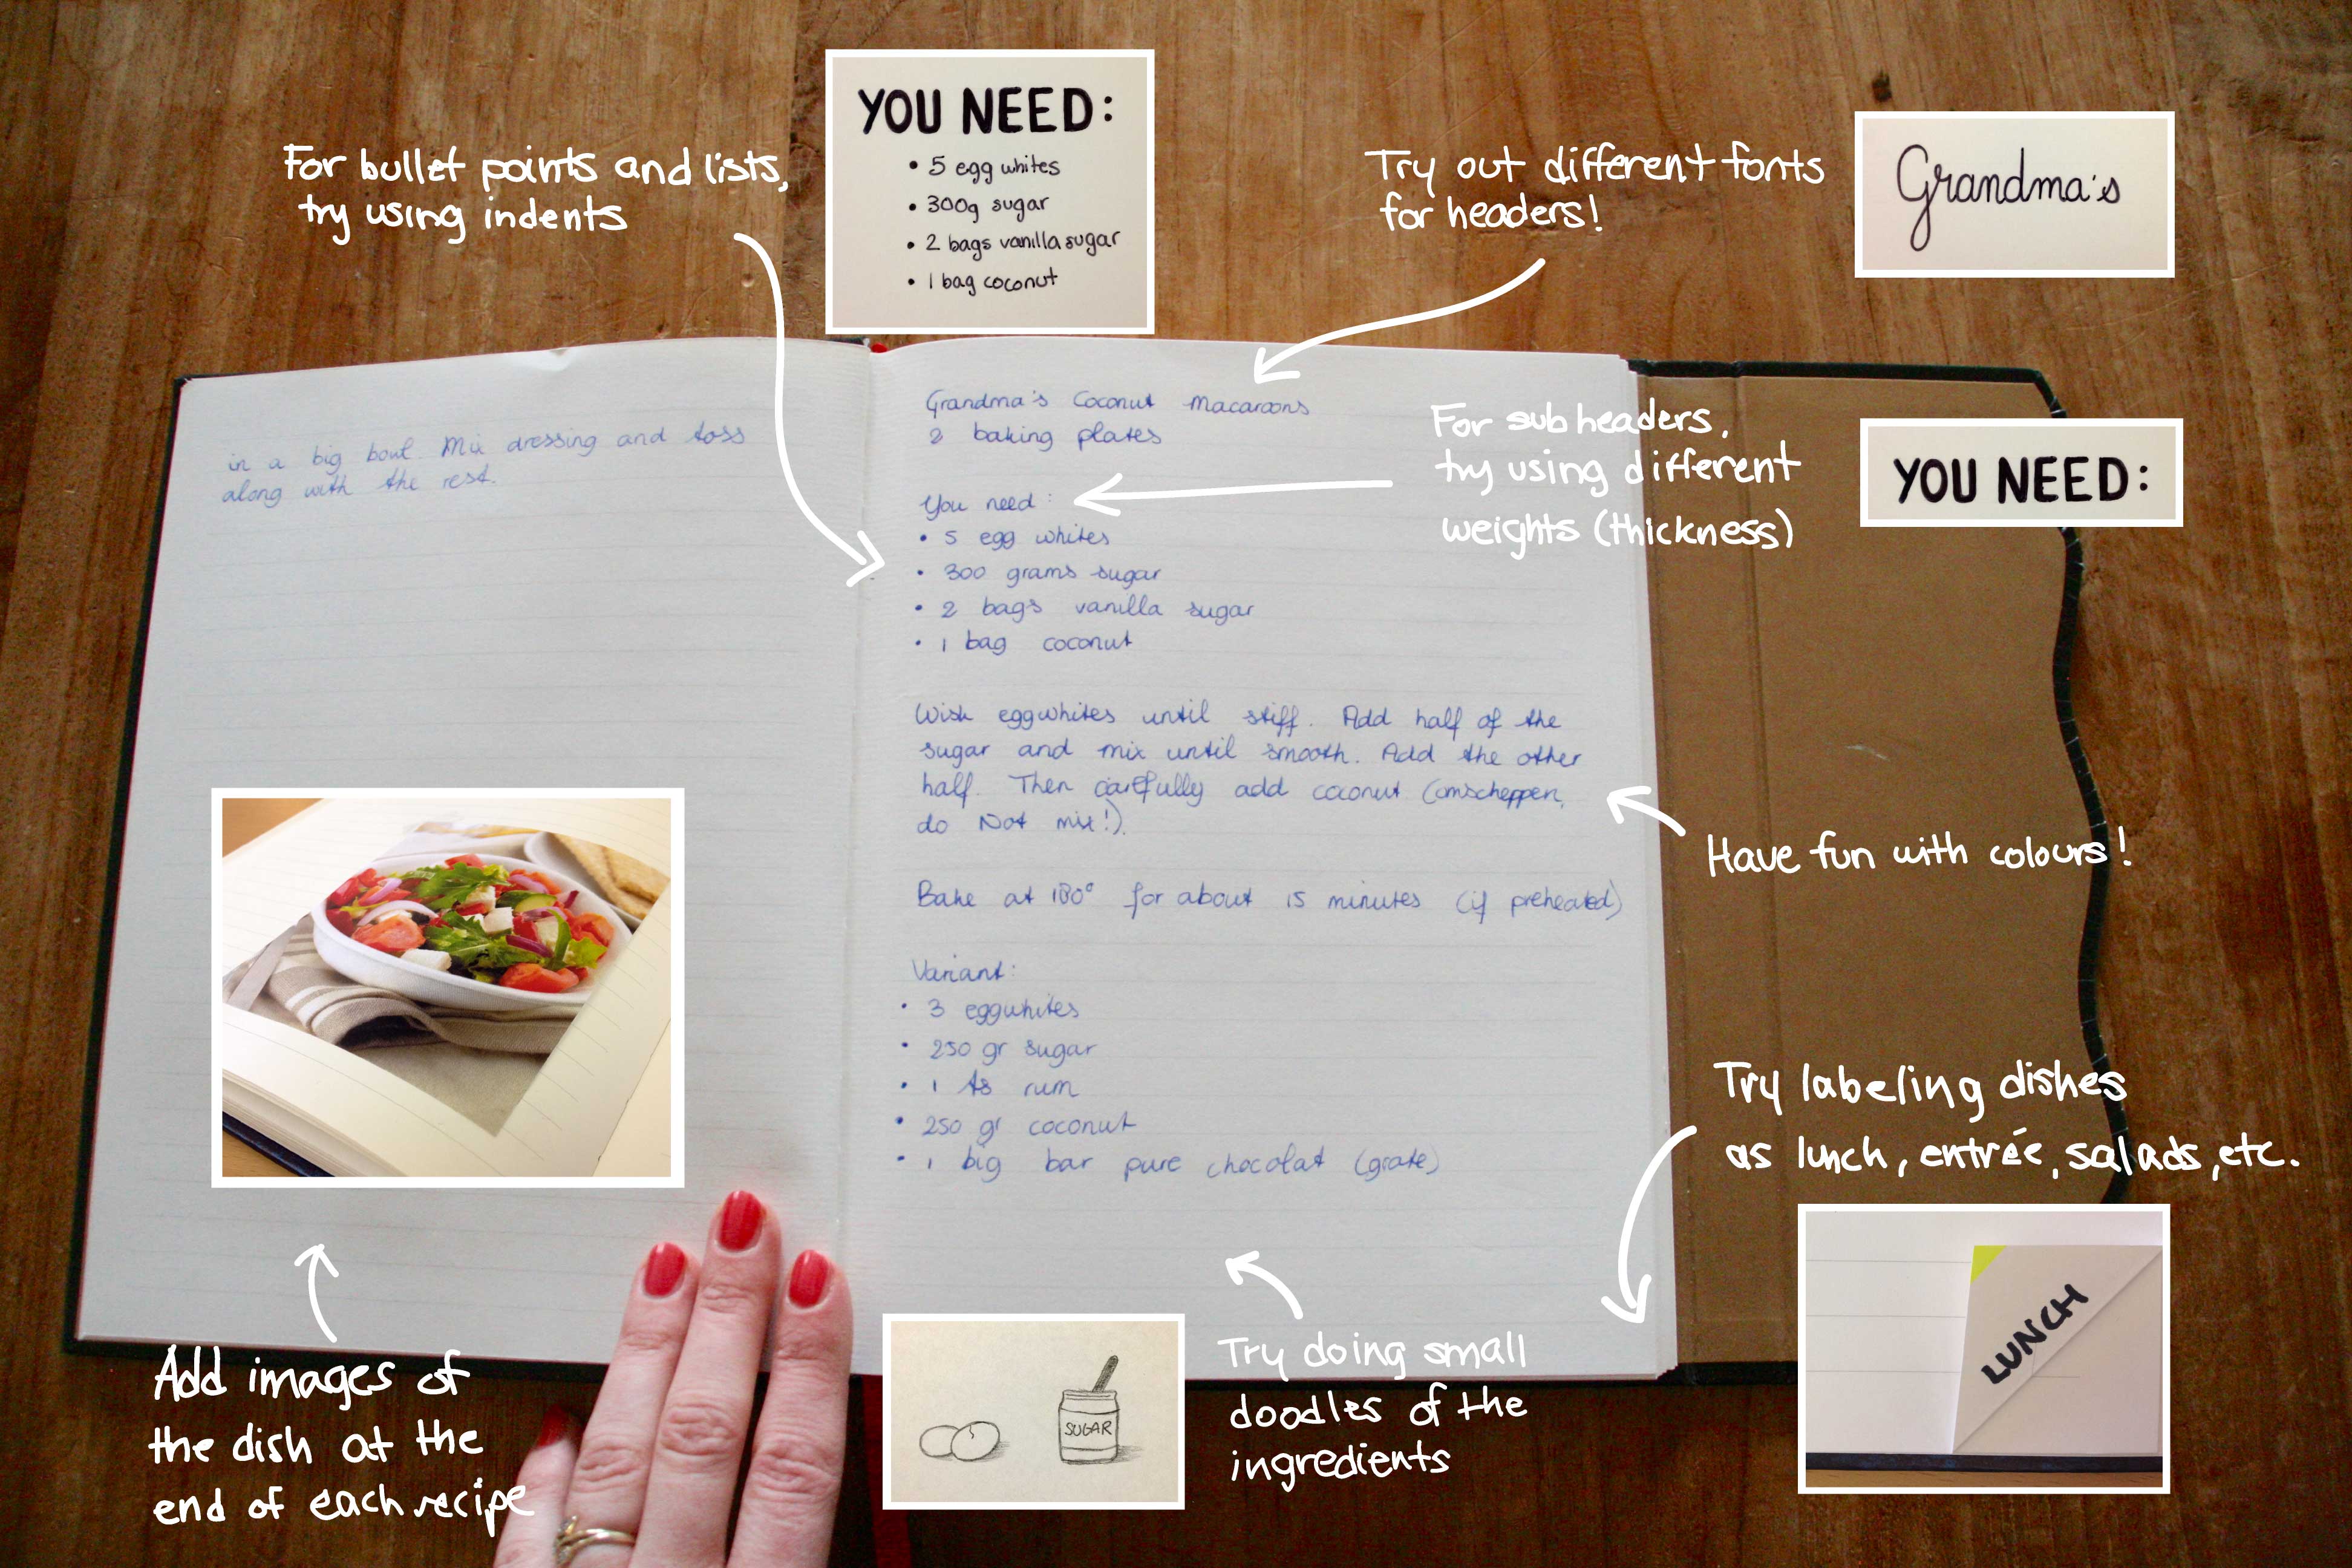 YOU NEED:
• 5 egg whites
• 300g sugar
• 2 bags vanilla sugar
• 1 bag coconut
For bullet points and lists,
try using indents
Try out different fonts
for headers!
Grandma's
in a big bowl. Mix dressing and toss
along with the rest.
Grandma's Coconut Macaroons
2 baking plates
You need:
• 5 egg whites
• 300 grams sugar
• 2 bags vanilla sugar
• 1 bag coconut
Wisk eggwhites until stiff. Add half of the
sugar and mix until smooth. Add the other
half. Then carefully add coconut (omscheppen,
do Not mix!).
Bake at 180° for about 15 minutes (if preheated)
Variant:
• 3 eggwhites
• 250 gr sugar
• 1 ts rum
• 250 gr coconut
• 1 big bar pure chocolat (grate)
For subheaders,
try using different
weights (thickness)
YOU NEED:
Have fun with colours!
Try labeling dishes
as lunch, entrée, salads, etc.
LUNCH
Add images of
the dish at the
end of each recipe
SUGAR
Try doing small
doodles of the
ingredients